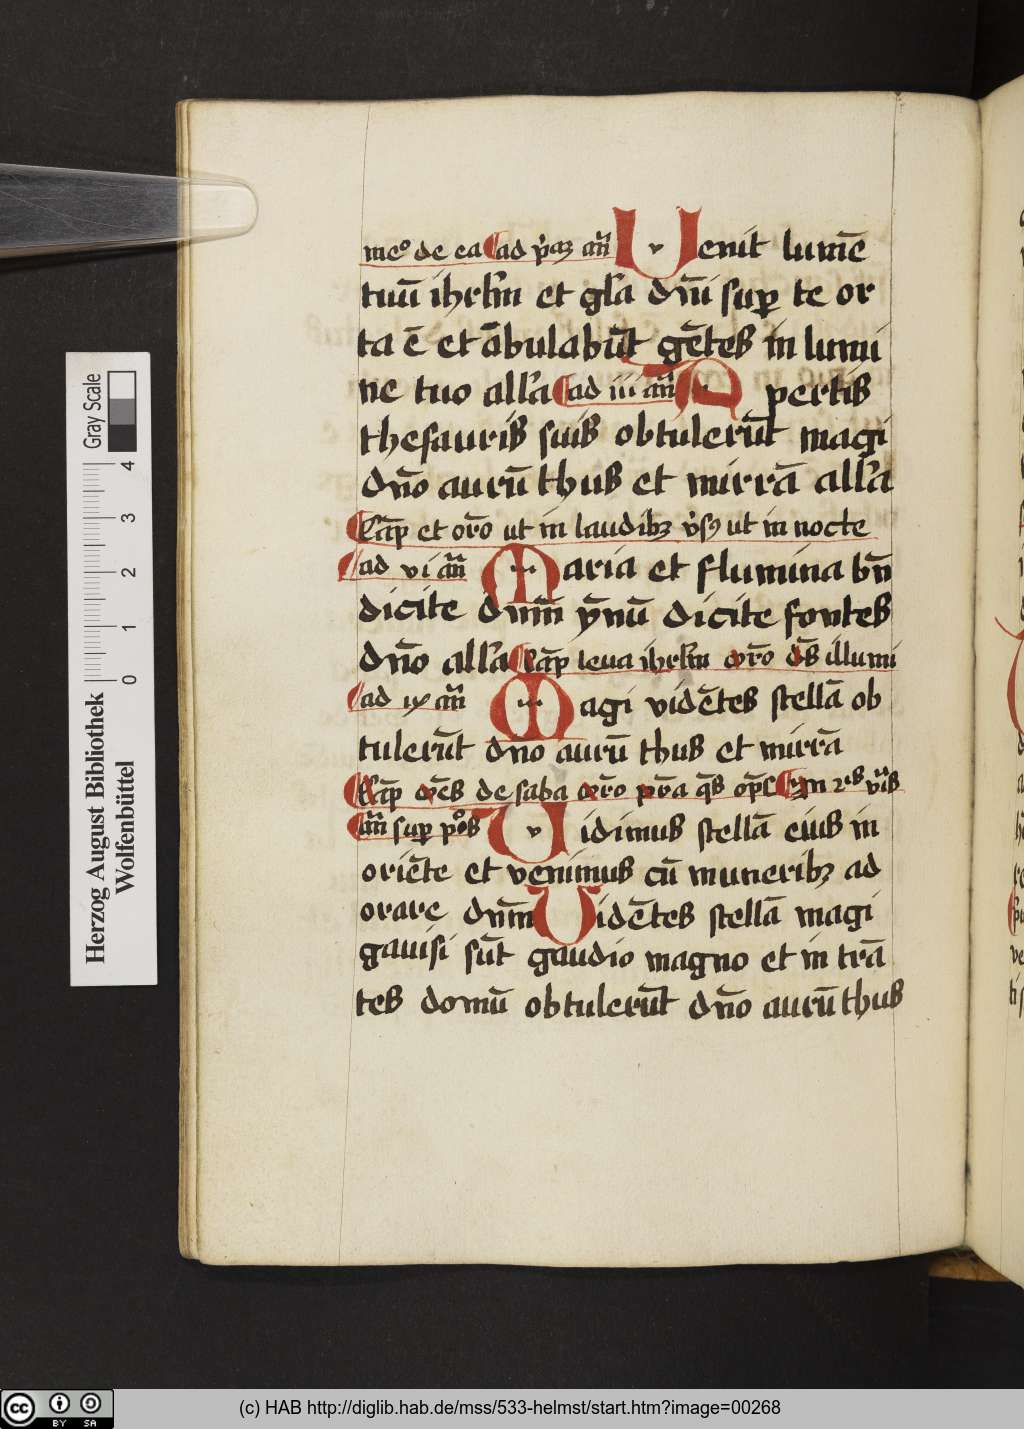 meo de ea ad p̄aꝫ an̄ Uenit lumē
tuū ihrl̄m et gl̄a dn̄i suꝑ te or
ta ē et ābulabūt gētes in lumi
ne tuo all'a ad iii an̄ Apertis
thesauris suis obtulerūt magi
dn̄o aurū thus et mirrā all'a
Cap̄ et or̄o ut in laudibꝫ v̄sꝫ ut in nocte
ad vi an̄ Maria et flumina bn̄
dicite dn̄m ȳnū dicite fontes
dn̄o all'a Cap̄ leua ihrl̄m or̄o ds̄ illumi
ad ix an̄ Magi vidētes stellā ob
tulerūt dn̄o aurū thus et mirrā
Cap̄ om̄es de saba or̄o
an̄ suꝑ p̄os Uidimus stellā eius in
oriēte et venimus cū muneribꝫ ad
orare dn̄m Uidētes stellā magi
gauisi sūt gaudio magno et in trā
tes domū obtulerūt dn̄o aurū thus
Gray Scale
4 3 2 1 0
Herzog August Bibliothek
Wolfenbüttel
cc BY SA
(c) HAB http://diglib.hab.de/mss/533-helmst/start.htm?image=00268